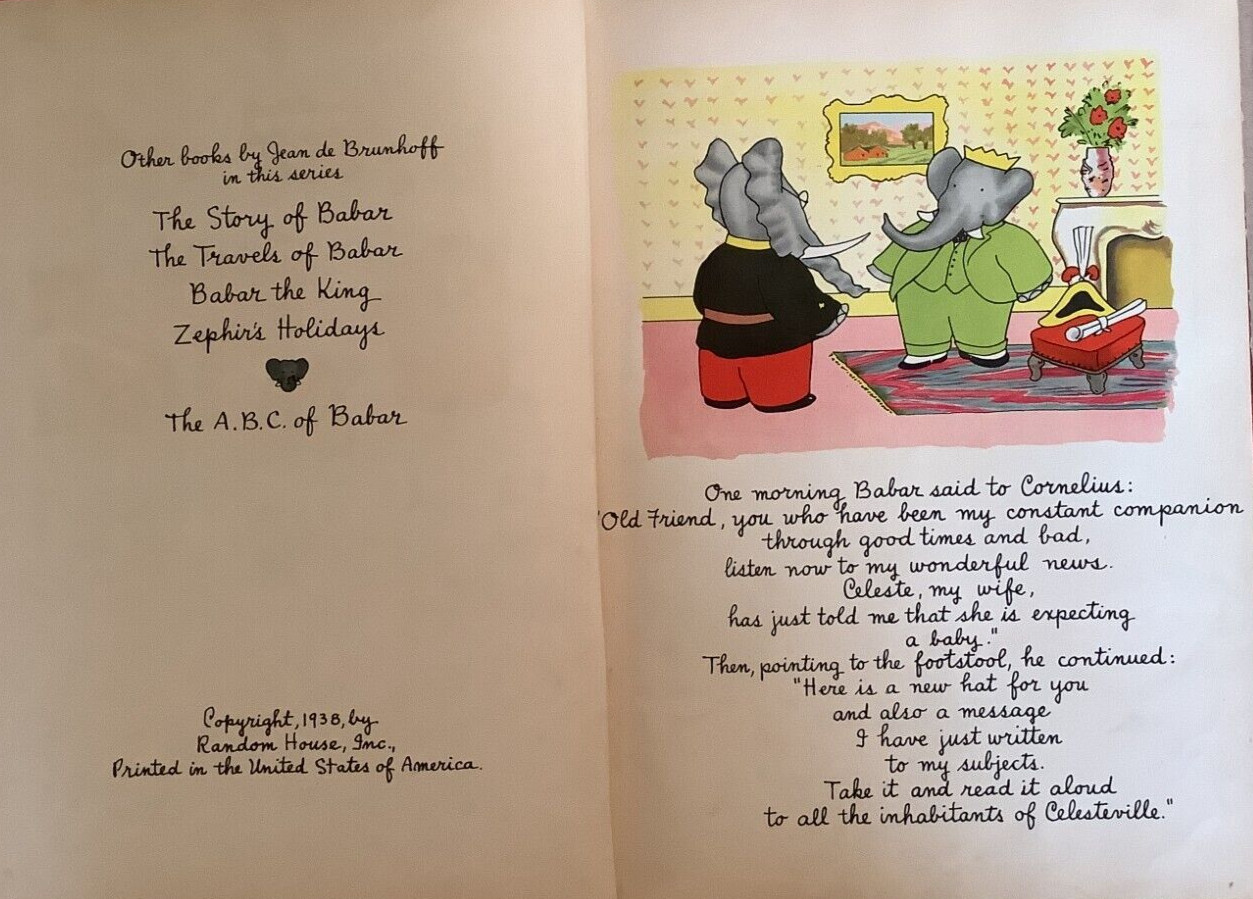 Other books by Jean de Brunhoff
in this series
The Story of Babar
The Travels of Babar
Babar the King
Zephir's Holidays
The A.B.C. of Babar
Copyright, 1938, by
Random House, Inc.,
Printed in the United States of America.
One morning Babar said to Cornelius:
"Old Friend, you who have been my constant companion
through good times and bad,
listen now to my wonderful news.
Celeste, my wife,
has just told me that she is expecting
a baby."
Then, pointing to the footstool, he continued:
"Here is a new hat for you
and also a message
I have just written
to my subjects.
Take it and read it aloud
to all the inhabitants of Celesteville."